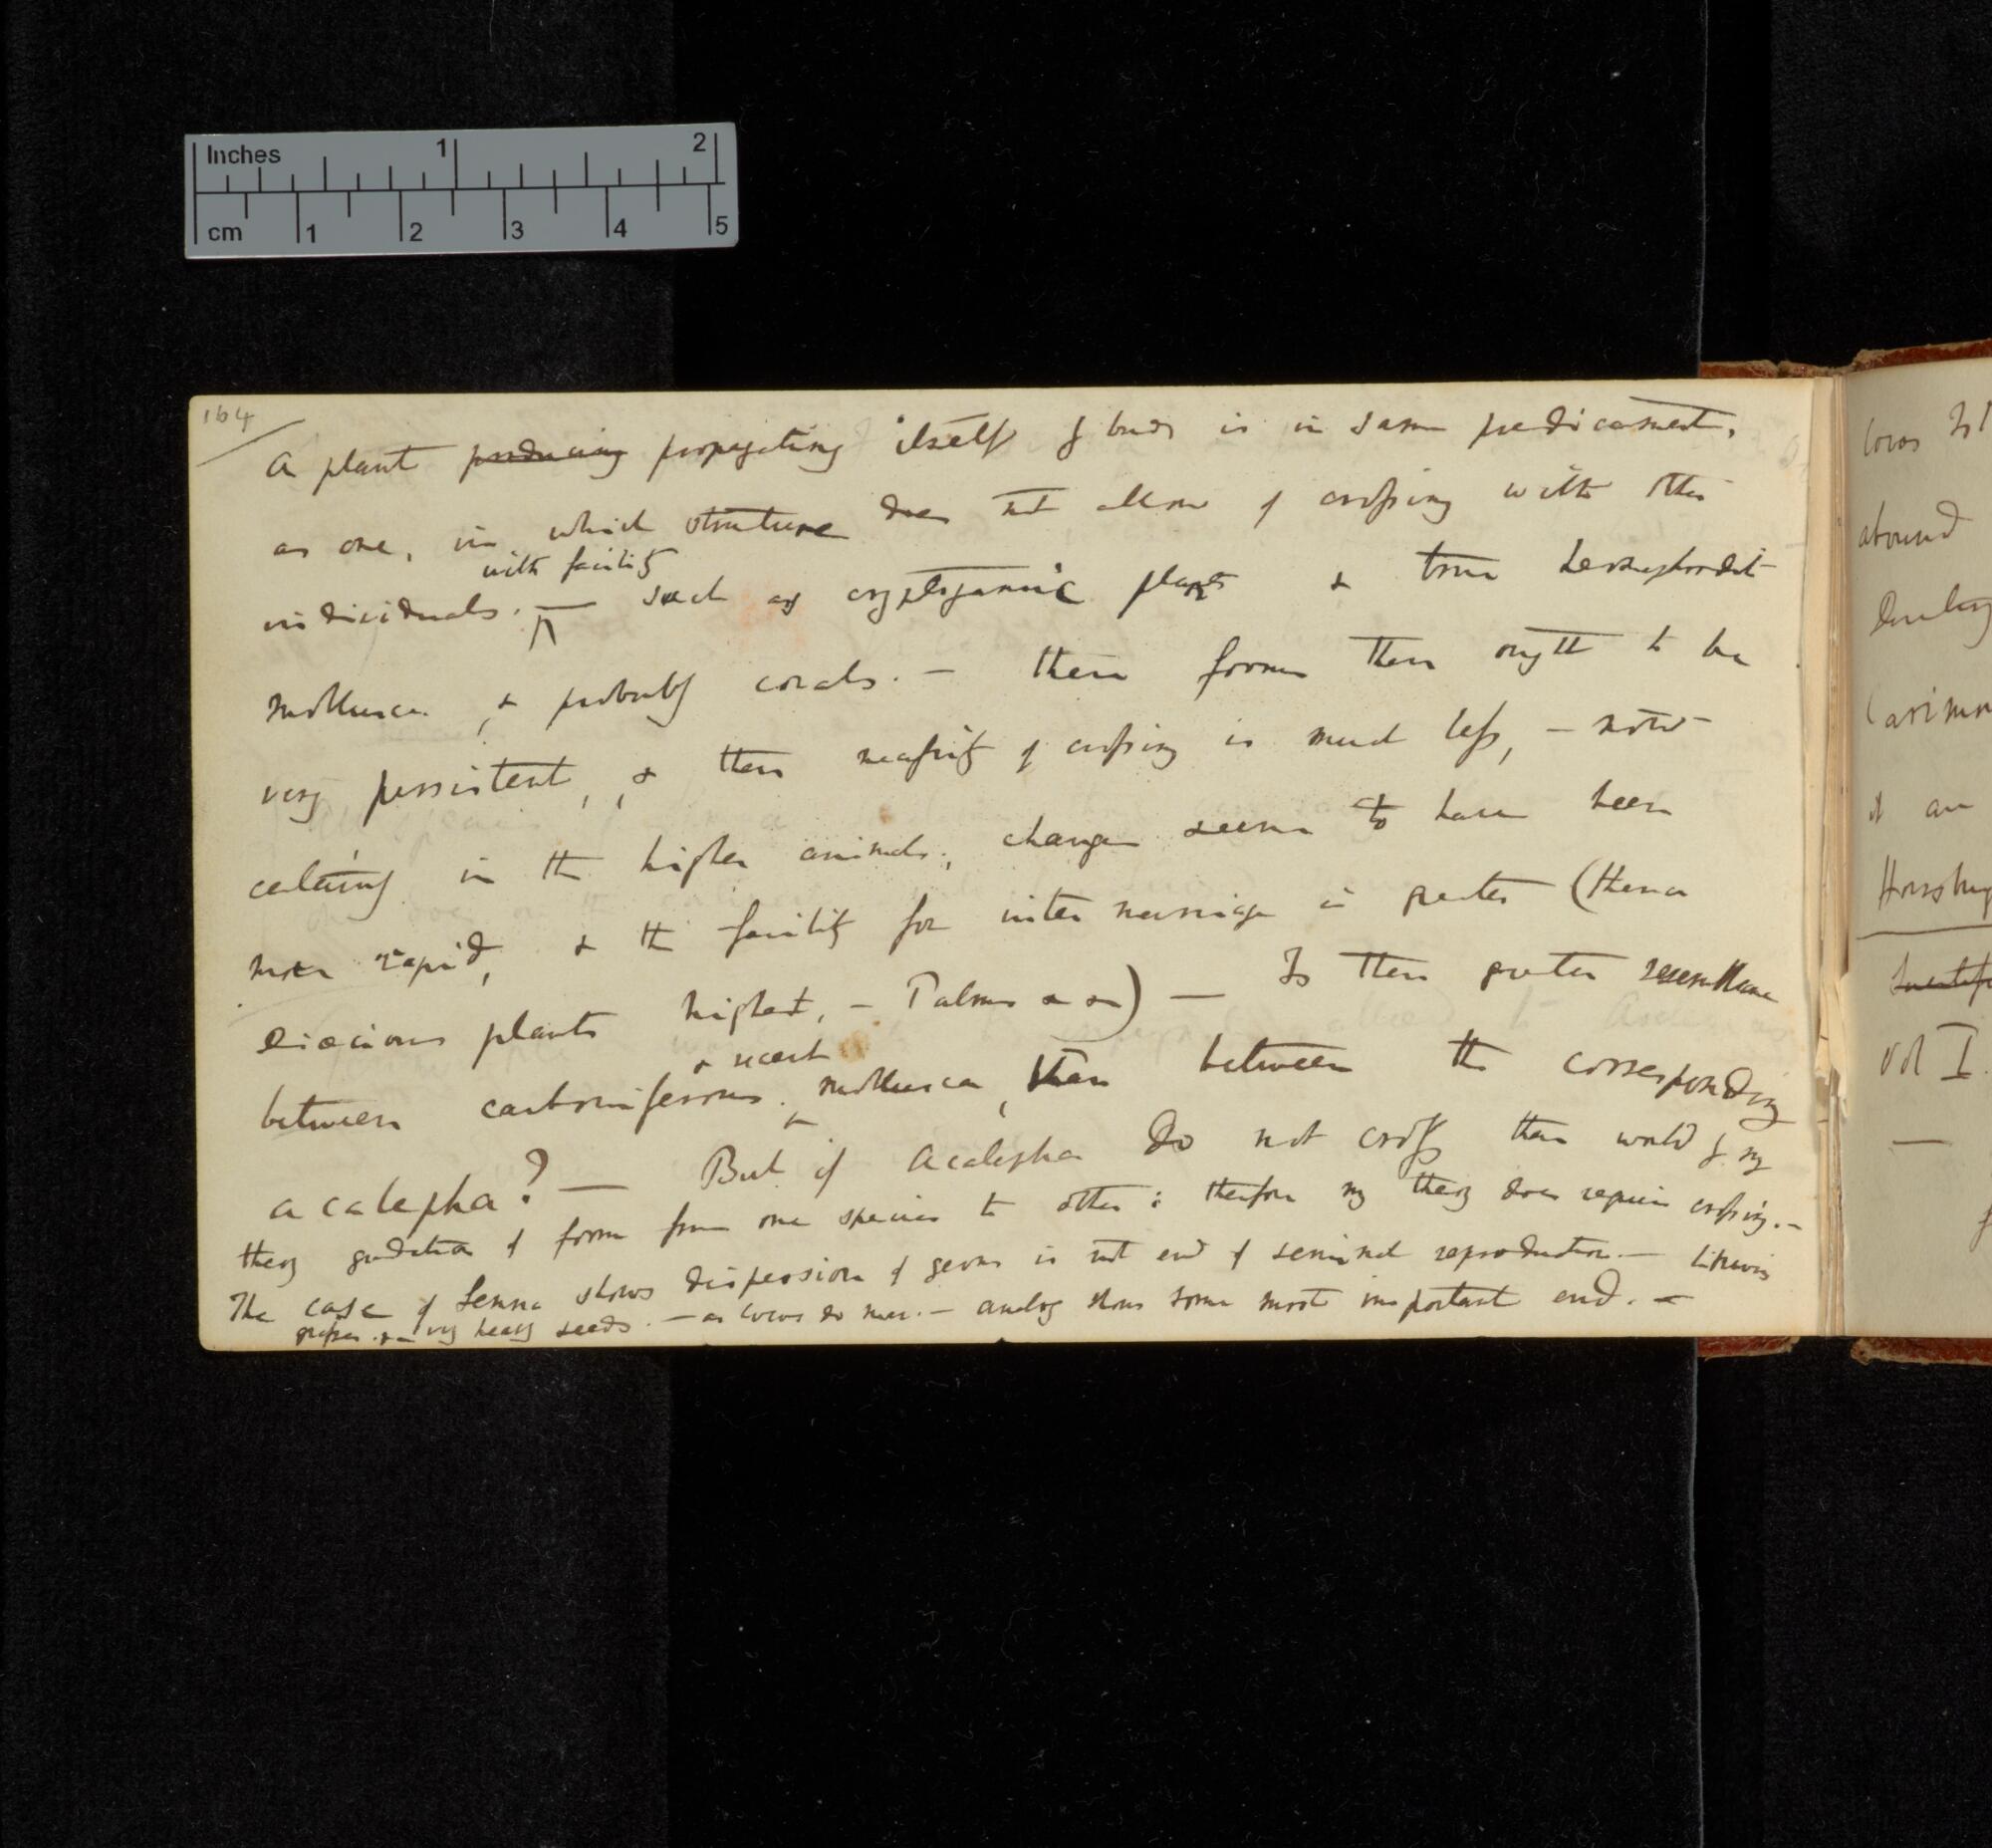 Inches 1 2
cm 1 2 3 4 5
164
A plant producing propagating itself by buds is in same predicament,
as one, in which structure does not allow of crossing with other
with facility
individuals. — such as cryptogamic plants & true hermaphrodite
mollusca, & probably corals. — these forms then ought to be
very persistent, & then necessity of crossing is much less, — now
certainly in the higher animals, changes seems to have been
more rapid, & the facility for inter marriage is greater (then a
diœcious plants highest, — Palms &c &c) — Is there greater resemblance
& recent
between carboniferous mollusca, than between the corresponding
acalepha? — But if Acalepha do not cross there would by my
theory gradation of form from one species to other: therefore my theory does require crossing. —
The case of Lemna shows dispersion of germs is not end of seminal reproduction. — Likewise
grasses &c — very heavy seeds. — as cocos do mer. — analogy shows some most important end. —
cocos
abound
Carimo
it are
Horsburg
Vol I.
—